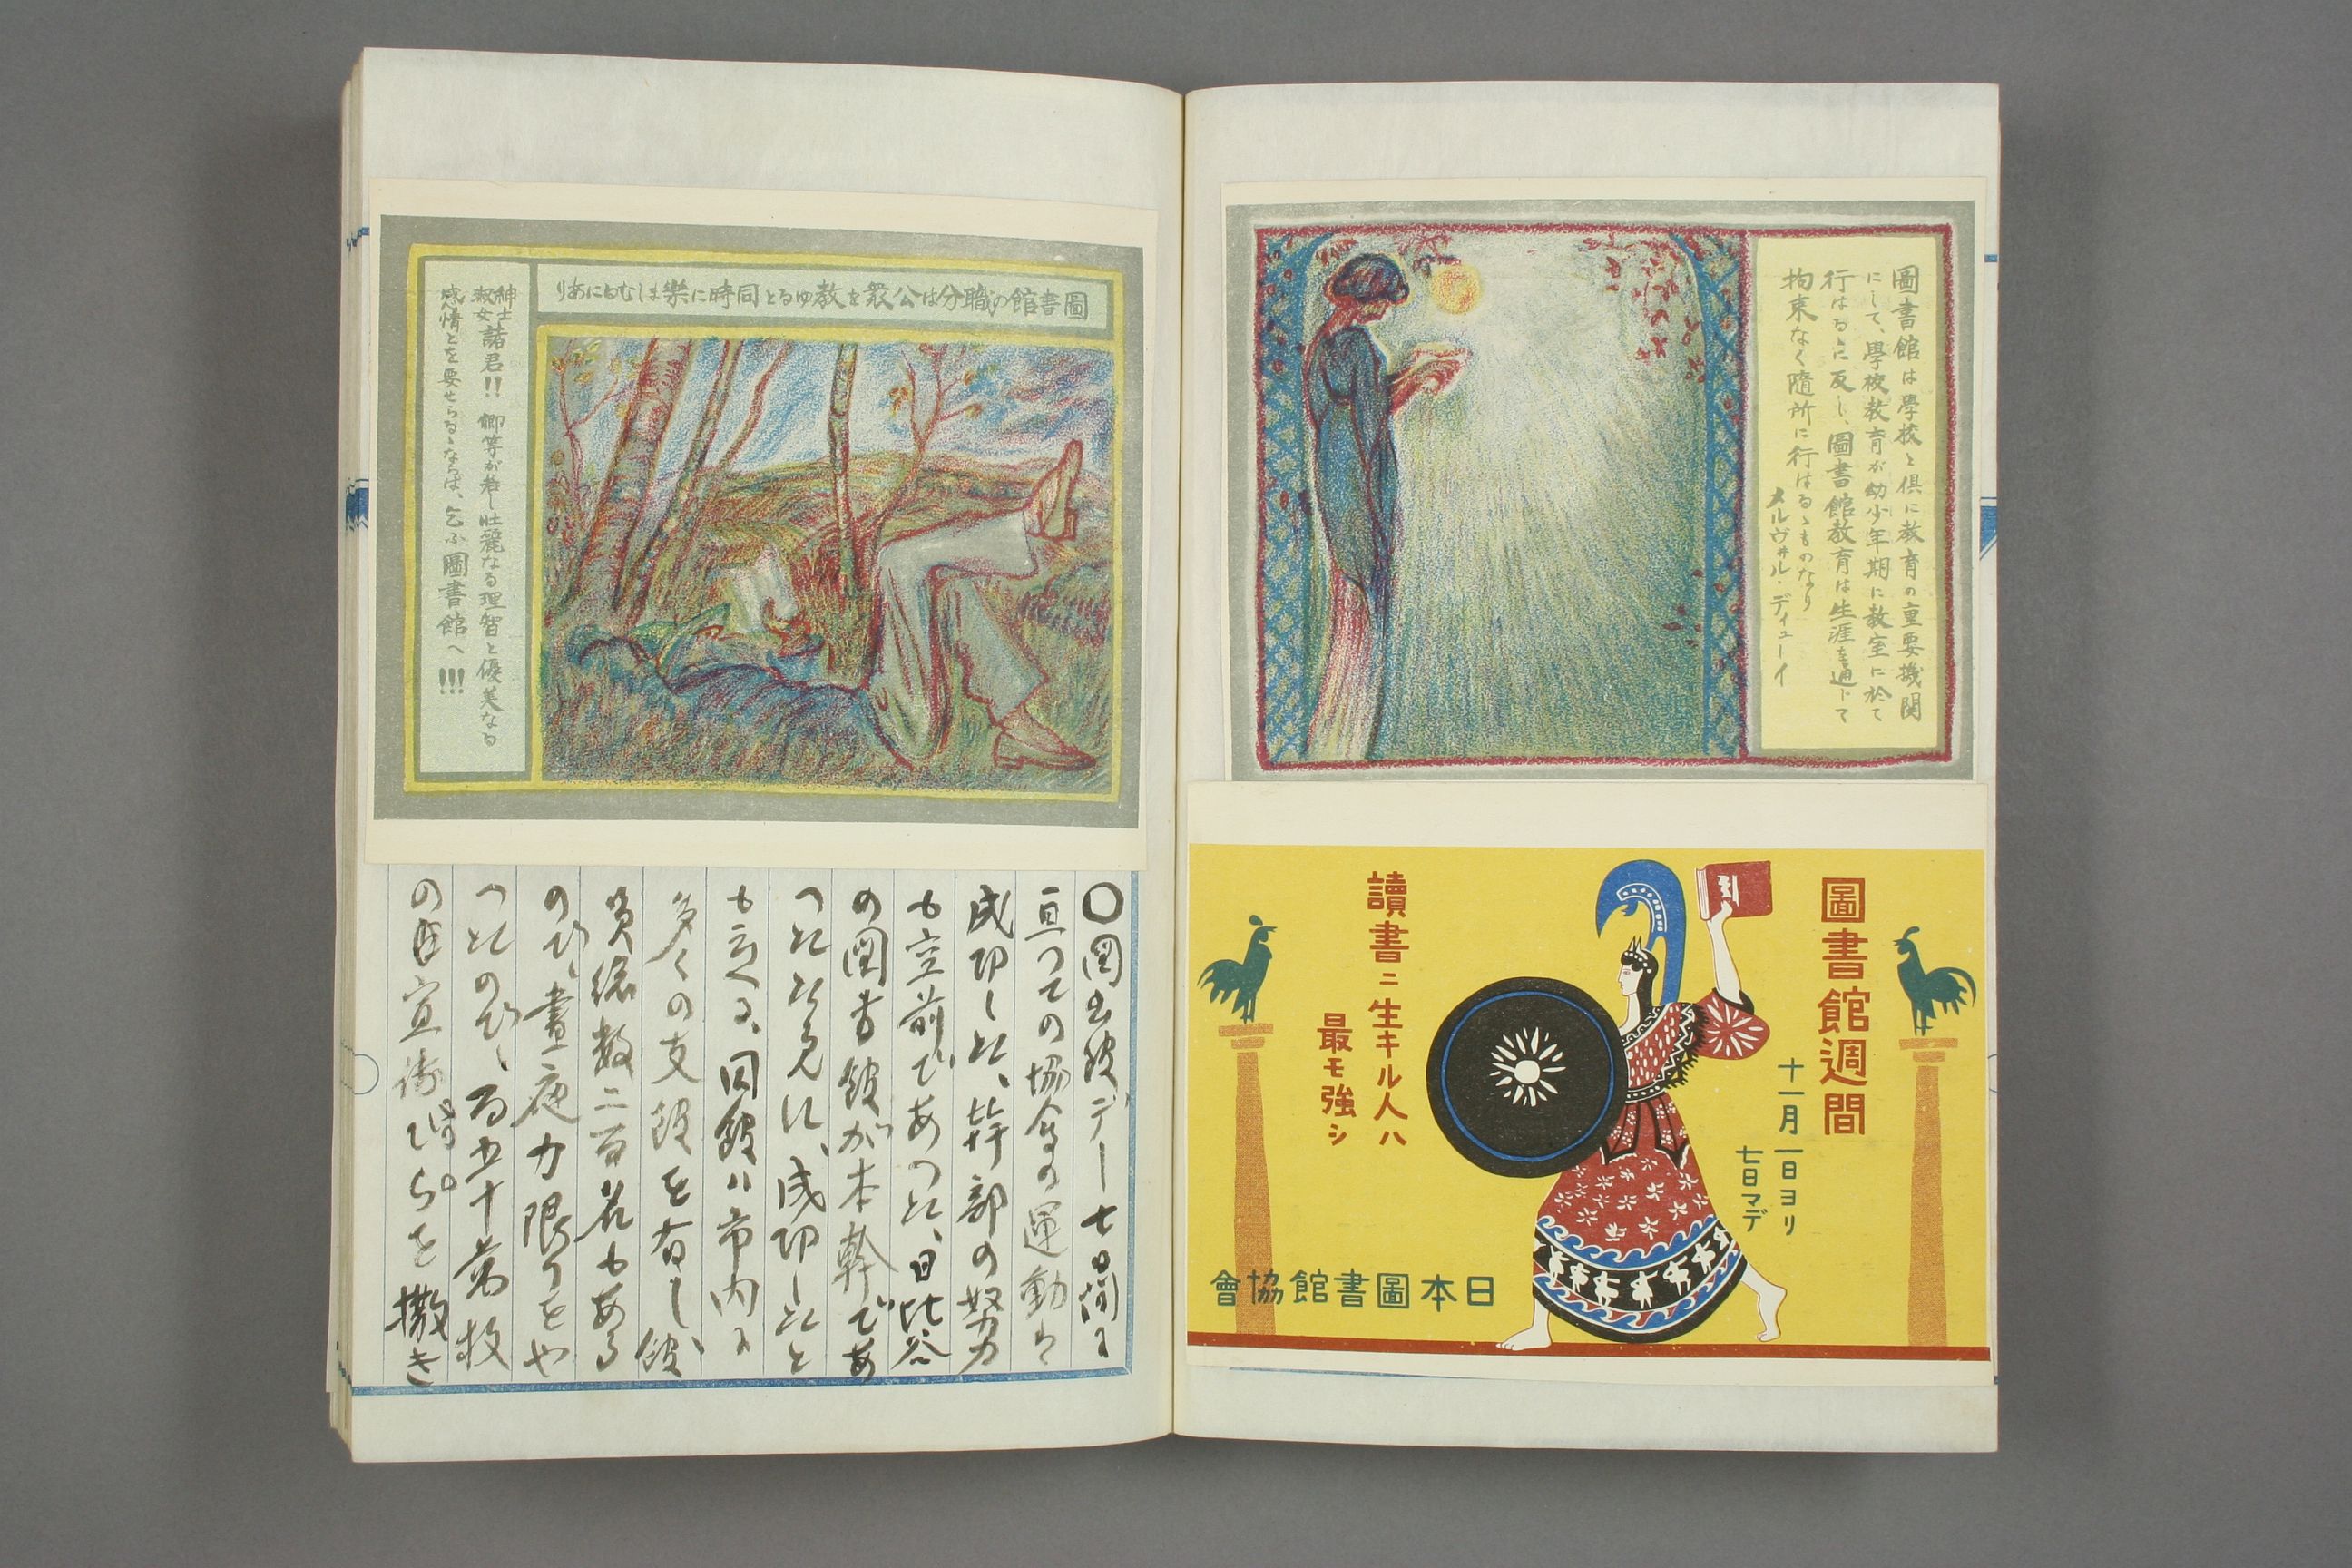 圖書館は學校と倶に教育の重要機関
にして、學校教育が幼少年期に教室に於て
行はるゝに反し、圖書館教育は生涯を通じて
拘束なく隨所に行はるゝものなり
メルヴヰル・ディューイ
圖書館週間
十一月一日ヨリ
七日マデ
讀書ニ生キル人ハ
最モ強シ
日本圖書館協會
圖書館の職分は公衆を教ゆると同時に樂ましむるにあり
紳士淑女諸君!! 卿等が若し壮麗なる理智と優美なる
感情とを要せらるゝならば、乞ふ圖書館へ!!!
○図書館デー七日間に
亘つての協会の運動は
成功した、幹部の努力
も空前であつた、日比谷
の図書館が本幹であ
つた 成功したと
も云へる、同館ハ市内に
多くの支館を有し館
員総数二百名もある
ので、晝夜力限りをや
つたので、百五十萬枚
の 宣傳 らを撒き